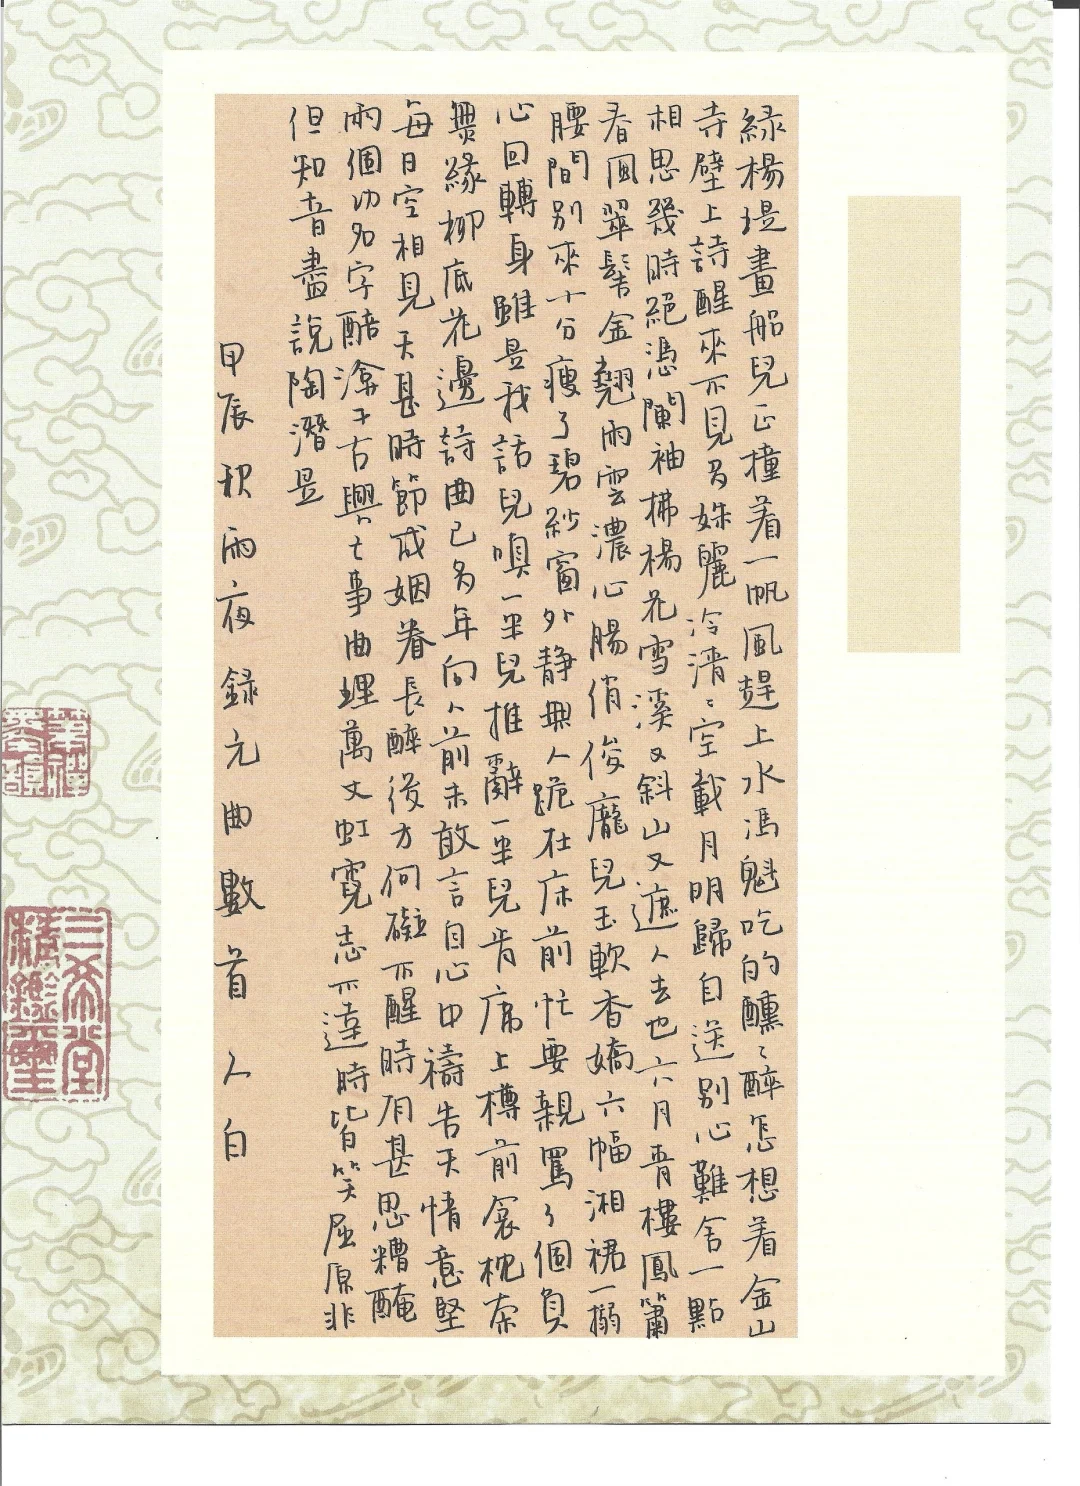 緑楊堤畫船兒正撞着一帆風趕上水馮魁吃的醺〻醉怎想着金山
寺壁上詩醒來不見多姝麗冷清〻空載月明歸自送別心難舍一點
相思幾時絕憑闌袖拂楊花雪溪又斜山又遮人去也六月青樓鳳簫
春風翠髻金翹雨雲濃心腸俏俊龐兒玉軟香嬌六幅湘裙一搦
腰間別來十分瘦了碧紗窗外靜無人跪在床前忙要親罵了個負
心回轉身雖是我話兒嗔一半兒推辭一半兒肯席上樽前衾枕奈
無緣柳底花邊詩曲已多年向人前未敢言自心中禱告天情意堅
每日空相見天甚時節成姻眷長醉後方何礙不醒時有甚思糟醃
兩個功名字醅渰千古興亡事曲埋萬丈虹霓志不達時皆笑屈原非
但知音盡說陶潛是
甲辰秋雨夜録元曲數首 白
三希堂精鑑璽